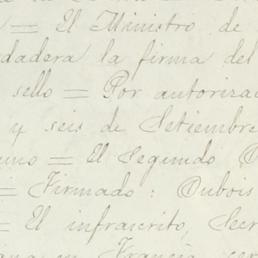 = El Ministro de
dadera la firma del
sello = Por autoriza
y seis de Setiembre
uno = El Segundo
= Firmado: Dubois
= El infrascrito, Secr
en Francia cer